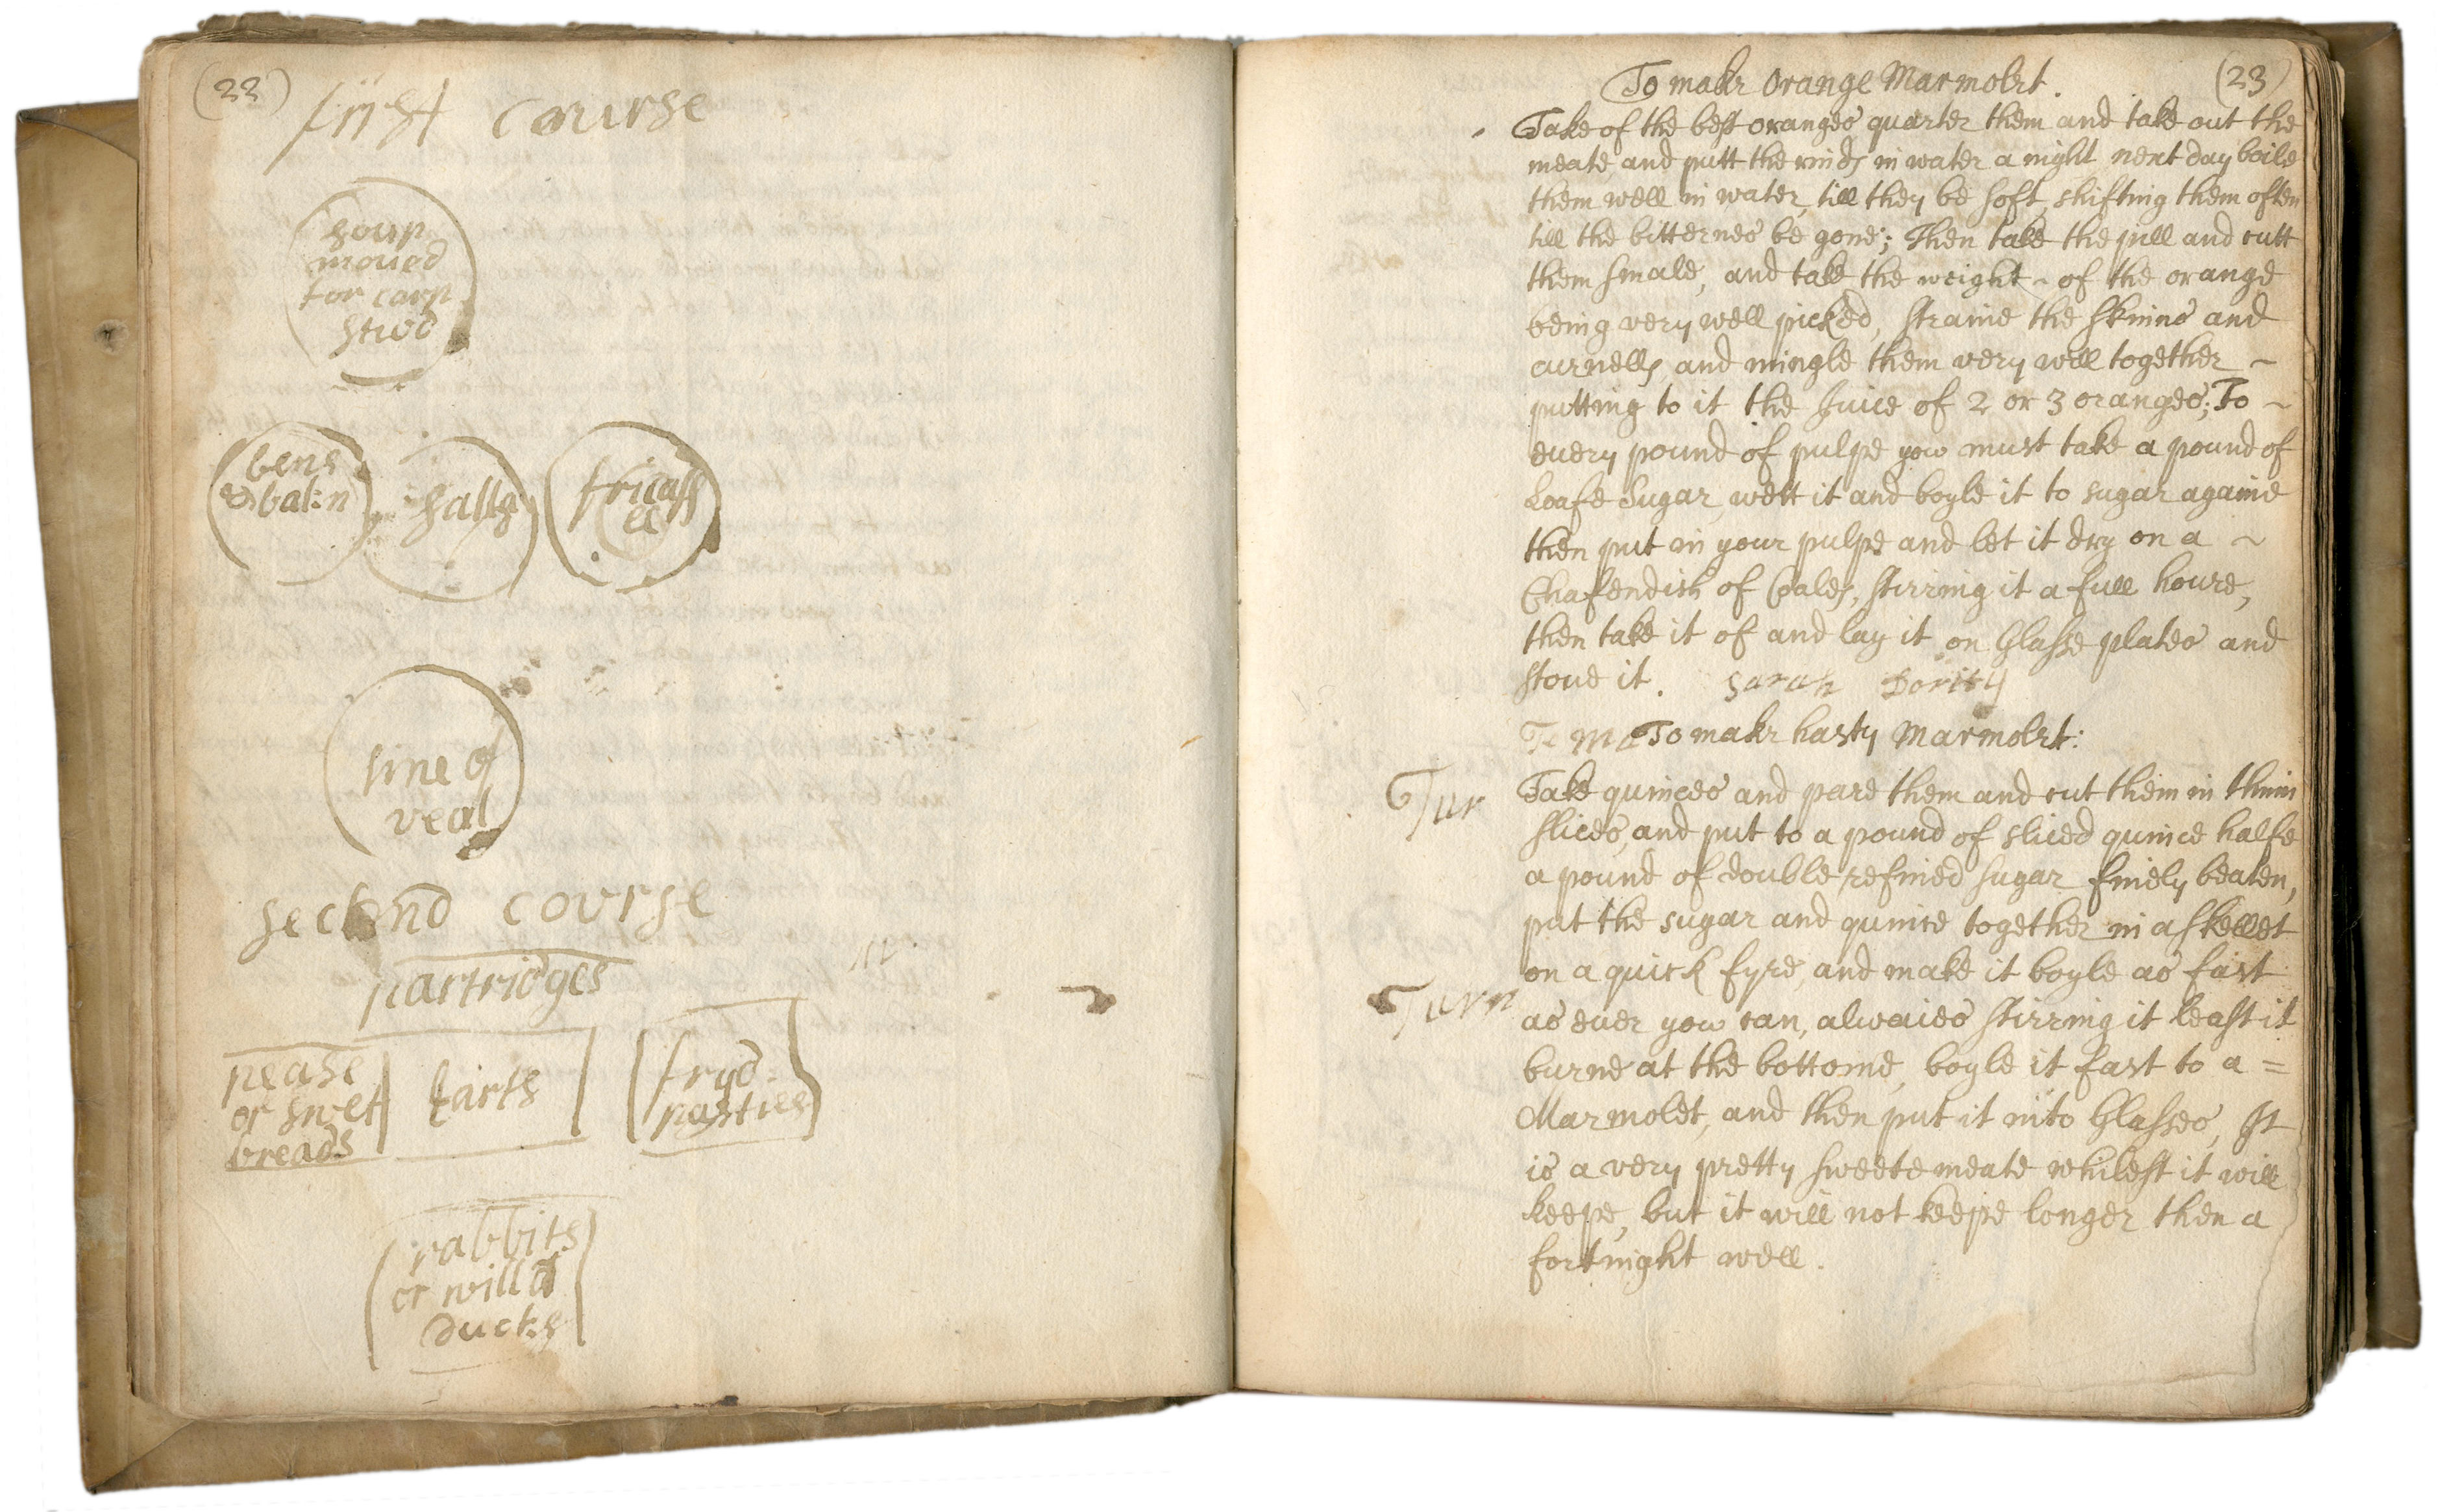 (22)
first course
soup
moued
for carp
stwd
bens
& bak:n
sallet
fricass
ee
line of
veal
second course
partridges
pease
or swet
breads
tarts
fryd
pasties
rabbits
or willd
ducks
(23)
To make Orange Marmolet.
Take of the best oranges quarter them and take out the
meate, and putt the rinds in water a night next day boile
them well in water, till they be soft, shifting them often
till the bitternes be gone; Then take the pill and cutt
them smale, and take the weight ~ of the orange
being very well picked, straine the skinns and
curnells, and mingle them very well together ~
putting to it the Juice of 2 or 3 oranges; To ~
euery pound of pulpe yow must take a pound of
Loafe Sugar, wett it and boyle it to sugar againe
then put in your pulpe and let it dry on a ~
Chafendish of Coales, stirring it a full houre,
then take it of and lay it on Glasse plates and
stoue it. Sarah
To Ma To make hasty Marmolet:
Tur
Take quinces and pare them and cut them in thinn
slices, and put to a pound of sliced quince halfe
a pound of double refined sugar finely beaten,
put the sugar and quince together in a skellet
on a quick fyre, and make it boyle as fast
Turn
as euer yow can, alwaies stirring it least it
burne at the bottome, boyle it fast to a =
Marmolet, and then put it into Glasses, It
is a very pretty sweetemeate whilest it will
keepe, but it will not keepe longer then a
fortnight well.